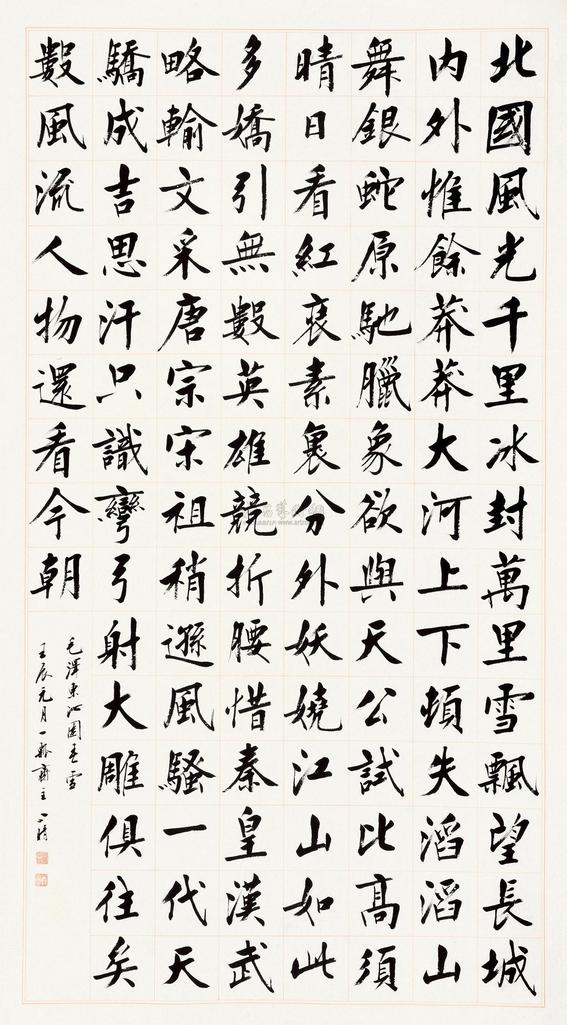 北國風光千里冰封萬里雪飄望長城
内外惟餘莽莽大河上下頓失滔滔山
舞銀蛇原馳臘象欲與天公試比高須
晴日看紅素裹分外妖嬈江山如此
多嬌引無數英雄競折腰惜秦皇漢武
略輸文采唐宗宋祖稍遜風騷一代天
驕成吉思汗只識彎弓射大雕俱往矣
數風流人物還看今朝
毛澤東沁園春雪
壬辰元月一齋主